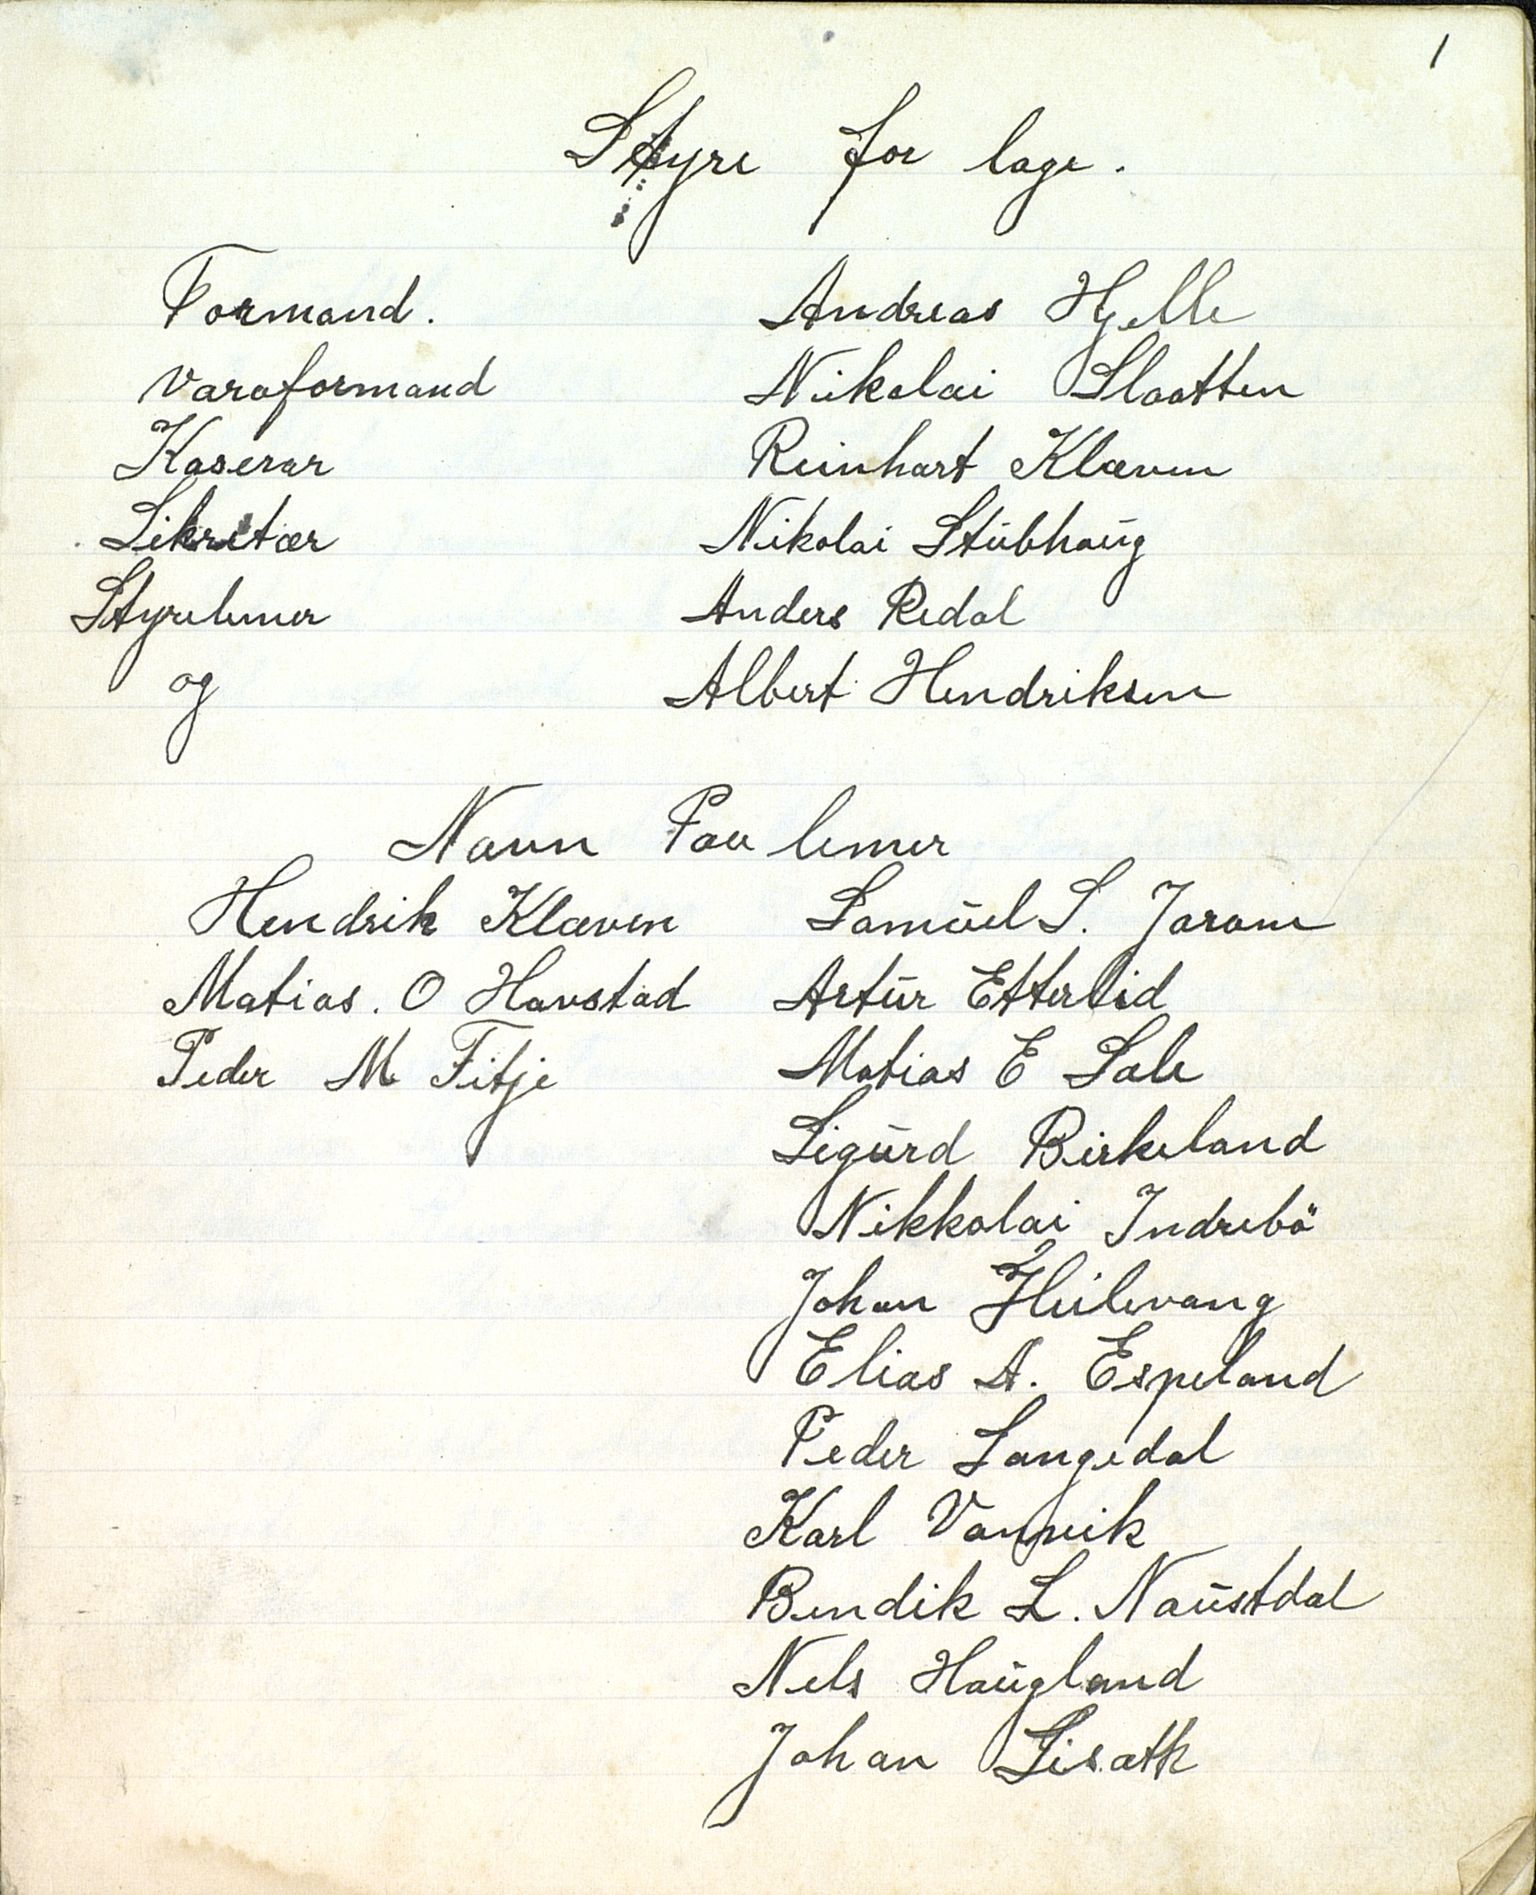 1
Styre for lage.
Formand. Andreas Hjelle
Varaformand Nikolai Slaatten
Kaserar Reinhart Klæven
Sikretær Nikolai Stubhaug
Styrelemer Anders Redal
og Albert Hendriksen
Navn Paa lemer
Hendrik Klæven Samuel S. Jaram
Matias. O Havstad Artur Etterlid
Peder M Fitje Matias E Sale
Sigurd Birkeland
Nikkolai Indrebö
Johan Heilevang
Elias A. Espeland
Peder Langedal
Karl Vannvik
Bendik L. Naustdal
Nels Haugland
Johan